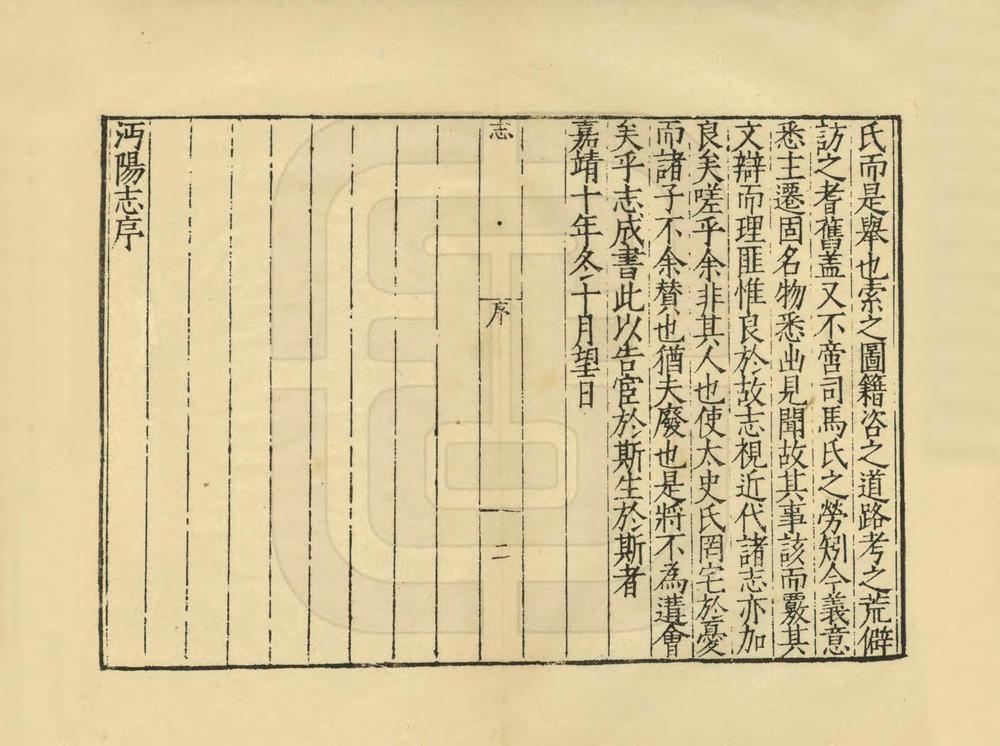 氏而是舉也索之圖籍咨之道路考之荒僻
訪之耆舊蓋又不啻司馬氏之勞矧今義意
悉主遷固名物悉出見聞故其事該而覈其
文辯而理匪惟良於故志視近代諸志亦加
良矣嗟乎余非其人也使太史氏罔宅於憂
而諸子不余贊也猶夫廢也是將不為遺會
矣乎志成書此以告宦於斯生於斯者
嘉靖十年冬十月望日
志
序
二
沔陽志序